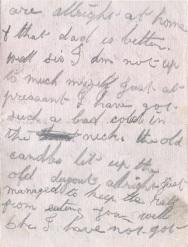 are allright at home
& that dad is better.
well sis I am not up
to much myself just at
preasant I have got
such a bad cold in
the neck. the old
candles lit up the
old dugout allright just
managed to keep the rats
from eating you, well
I have not got